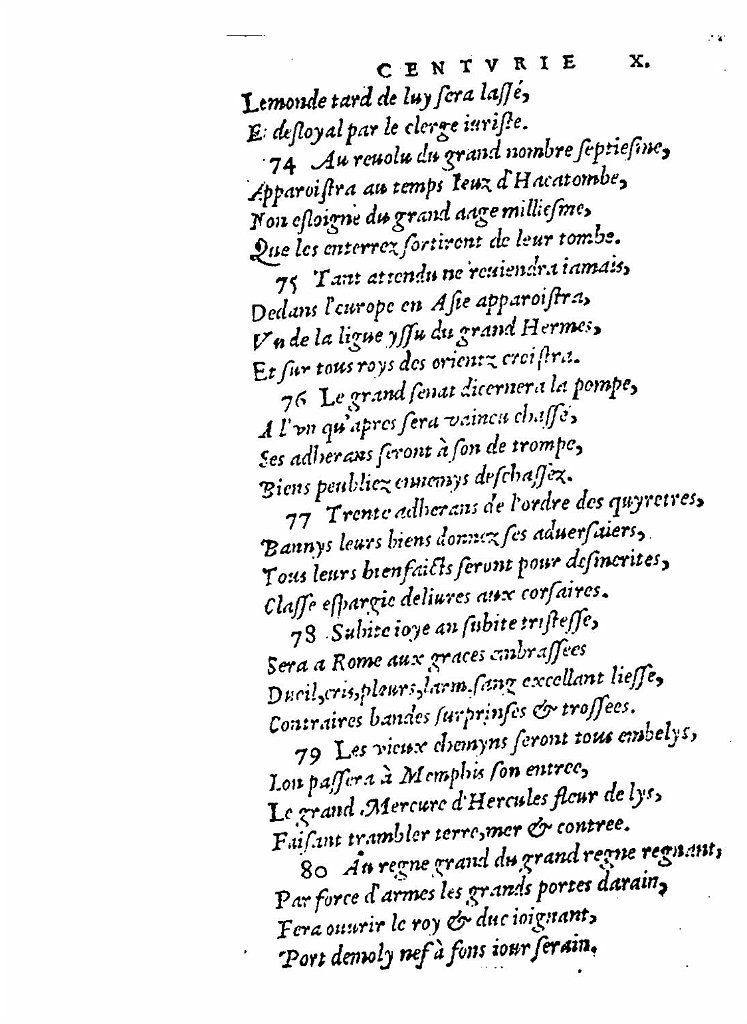 CENTVRIE X.
Le monde tard de luy sera lassé,
Et desloyal par le clerge iuriste.
74 Au reuolu du grand nombre septiesme,
Apparoistra au temps Ieuz d'Hacatombe,
Non esloigné du grand aage milliesme,
Que les enterrez sortiront de leur tombe.
75 Tant attendu ne reuiendra iamais,
Dedans l'europe en Asie apparoistra,
Vn de la ligue yssu du grand Hermes,
Et sur tous roys des orientz croistra.
76 Le grand senat dicernera la pompe,
A l'vn qu'apres sera vaincu chassé,
Ses adherans seront à son de trompe,
Biens peubliez ennemys deschassez.
77 Trente adherans de l'ordre des quyretres,
Bannys leurs biens donnez ses aduersaiers,
Tous leurs bienfaicts seront pour desmerites,
Classe espargie deliures aux corsaires.
78 Subite ioye an subite tristesse,
Sera a Rome aux graces embrassees
Dueil, cris, pleurs, larm. sang excellant liesse,
Contraires bandes surprinses & trossees.
79 Les vieux chemyns seront tous embelys,
Lon passera à Memphis son entree,
Le grand Mercure d'Hercules fleur de lys,
Faisant trambler terre, mer & contree.
80 Au regne grand du grand regne regnant,
Par force d'armes les grands portes darain,
Fera ouurir le roy & duc ioignant,
Port demoly nef à fons iour serain.